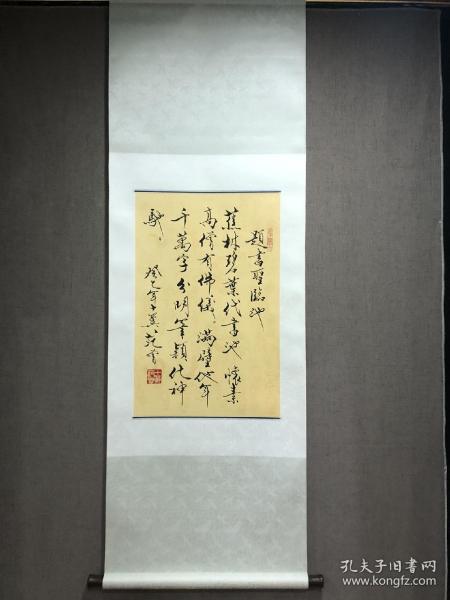 題書聖臨池
蕉林碧葉代書池懷素
高僧有佛儀滿壁他年
千萬字分明筆穎化神
馳
癸巳年十翼范曾
孔夫子旧书网
www.kongfz.com